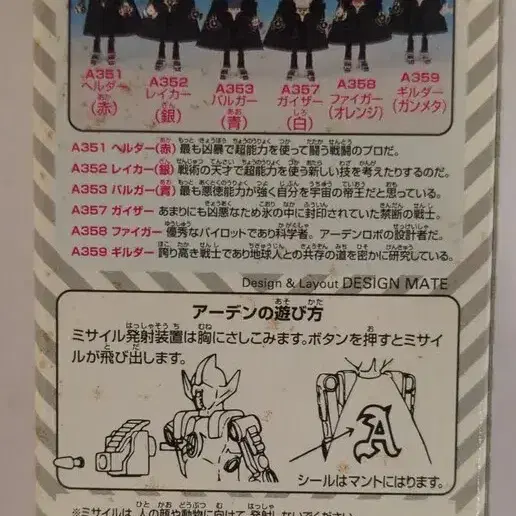 A351
ヘルダー
(赤)
A352
レイカー
(銀)
A353
バルガー
(青)
A357
ガイザー
(白)
A358
ファイガー
(オレンジ)
A359
ギルダー
(ガンメタ)
A351 ヘルダー(赤) 最も凶暴で超能力を使って闘う戦闘のプロだ。
A352 レイカー(銀) 戦術の天才で超能力を使う新しい技を考えたりするのだ。
A353 バルガー(青) 最も悪徳能力が強く自分を宇宙の帝王だと思っている。
A357 ガイザー あまりにも凶悪なため氷の中に封印されていた禁断の戦士。
A358 ファイガー 優秀なパイロットであり科学者。アーデンロボの設計者だ。
A359 ギルダー 誇り高き戦士であり地球人との共存の道を密かに研究している。
Design & Layout DESIGN MATE
アーデンの遊び方
ミサイル発射装置は胸にさしこみます。ボタンを押すとミサイ
ルが飛び出します。
A
シールはマントにはります。
※ミサイルは、人の顔や動物に向けて発射しないでください。